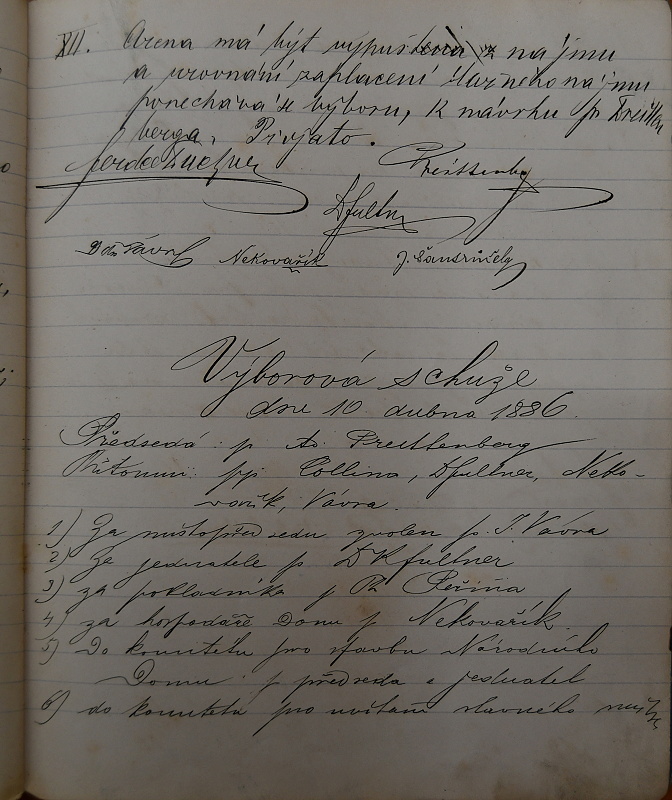 XII. Arena má být vypuštěna z nájmu
a urovnání zaplacení staršího nájmu
ponechává se výboru, k návrhu p.
berga. Přijato.
Nekovařík
Výborová schůze
dne 10. dubna 1886.
Předsedá: p. Ad. Preittenberg
Přítomni: pp. Collina, Dfultner, Neko-
vařík, Vávra.
1) Za místopředsedu zvolen p. J. Vávra
2) za jednatele p. Dr Kfultner
3) za pokladníka p. Peřina
4) za hospodáře Domu p. Nekovařík.
5) Do komitétu pro stavbu Národního
Domu p. předseda a jednatel
6) do komitétu pro uvítání slavného